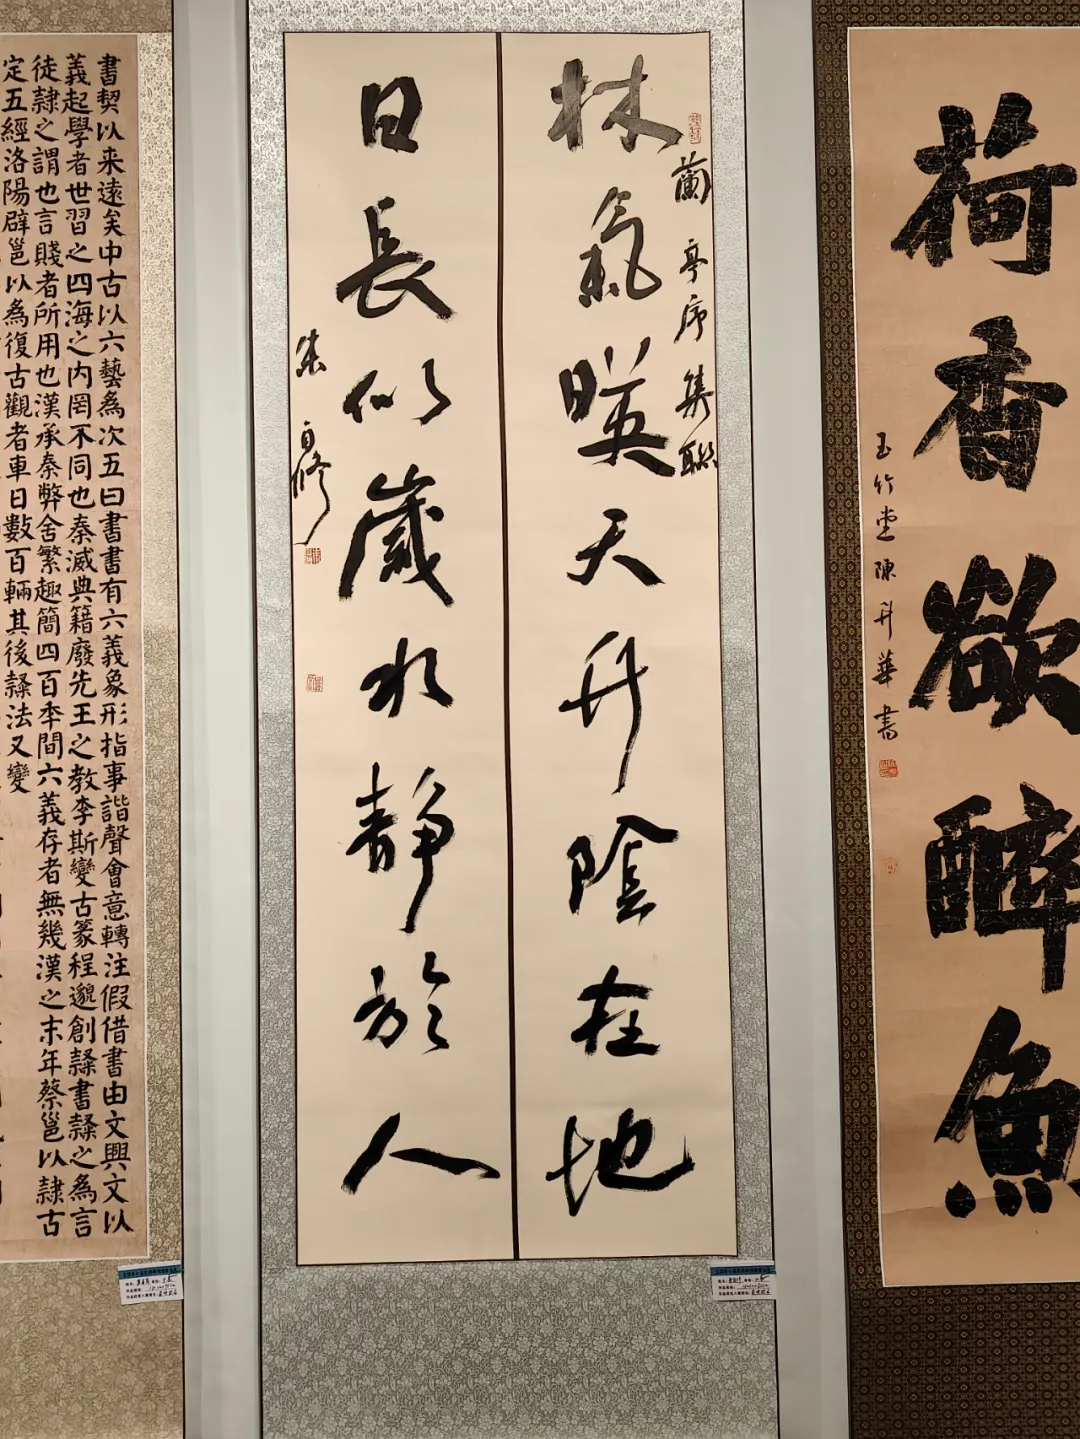 荷香欲醉魚
玉竹堂陳升華書
蘭亭序集聯
林氣暎天升陰在地
日長似歲水静於人
朱自修
書契以来遠矣中古以六藝為次五曰書書有六義象形指事諧聲會意轉注假借書由文興文以
義起學者世習之四海之内罔不同也秦滅典籍廢先王之教李斯變古篆程邈創隸書隸之為言
徒隸之謂也言賤者所用也漢承秦弊舍繁趣簡四百年間六義存者無幾漢之末年蔡邕以隸古
定五經洛陽辟邕以為復古觀者車日數百輛其後隸法又變